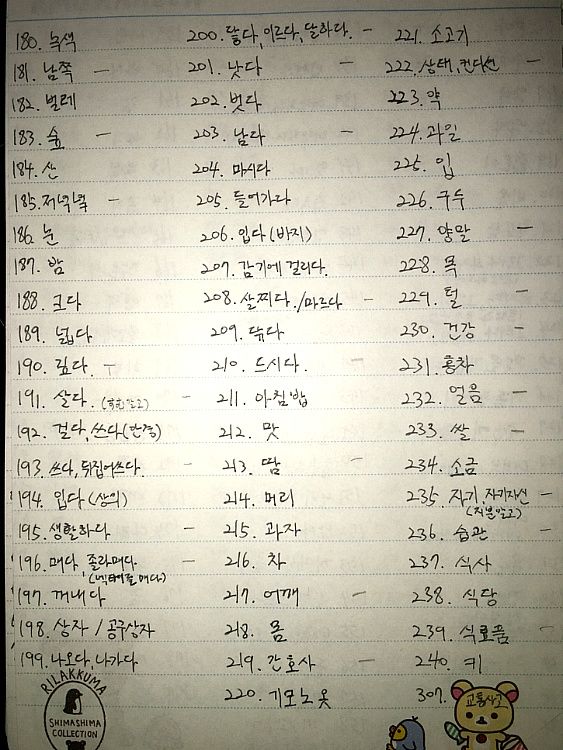 180. 녹색
181. 남쪽 —
182. 벌레
183. 숲 —
184. 산
185. 저녁녘 —
186. 눈
187. 밤
188. 크다
189. 넓다
190. 깊다.
191. 살다. —
192. 걸다, 쓰다(안경)
193. 쓰다, 뒤집어쓰다. —
194. 입다(상의)
195. 생활하다 —
196. 매다 졸라매다. —
(넥타이를 매다)
197. 꺼내다
198. 상자 / 공구상자
199. 나오다, 나가다
200. 닿다, 이르다, 달하다. —
201. 낫다 —
202. 벗다
203. 남다 —
204. 마시다
205. 들어가다
206. 입다(바지)
207. 감기에 걸리다.
208. 살찌다. /마르다 —
209. 닦다
210. 드시다. —
211. 아침밥
212. 맛
213. 땀 —
214. 머리
215. 과자
216. 차
217. 어깨 —
218. 몸
219. 간호사 —
220. 기모노 옷
221. 소고기
222. 상태, 컨디션 —
223. 약
224. 과일
225. 입
226. 구두
227. 양말 —
228. 목
229. 털 —
230. 건강 —
231. 홍차
232. 얼음 —
233. 쌀 —
234. 소금
235. 자기, 자기자신 —
236. 습관 —
237. 식사
238. 식당
239. 식료품 —
240. 키
307. 교통사고
RILAKKUMA
SHIMASHIMA
COLLECTION